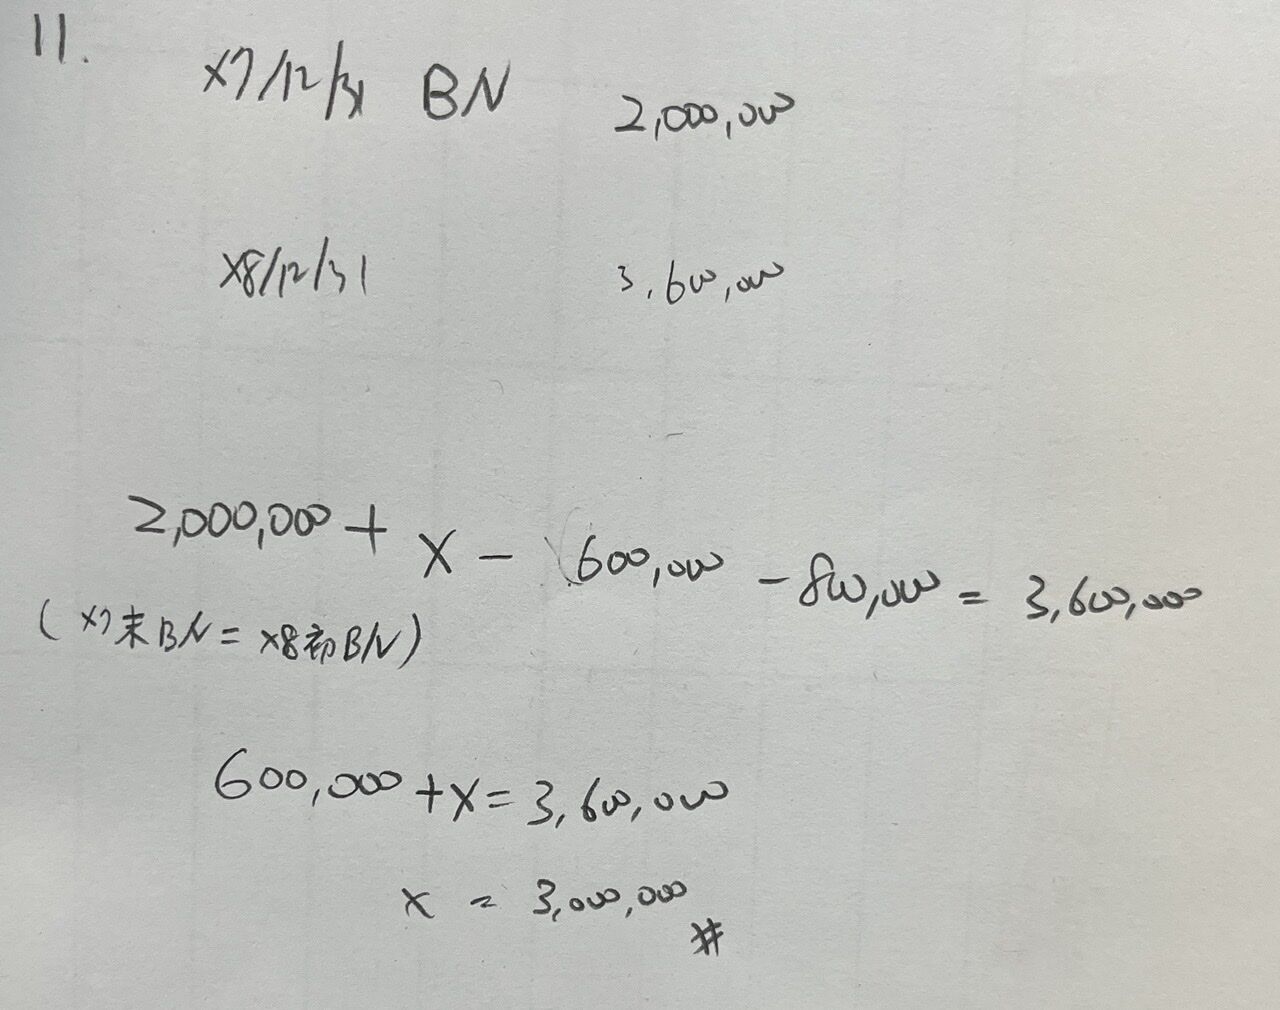 11.
X7/12/31 BN 2,000,000
X8/12/31 3,600,000
2,000,000 + X - 600,000 - 800,000 = 3,600,000
(X7末BN = X8初BN)
600,000 + X = 3,600,000
X = 3,000,000 #